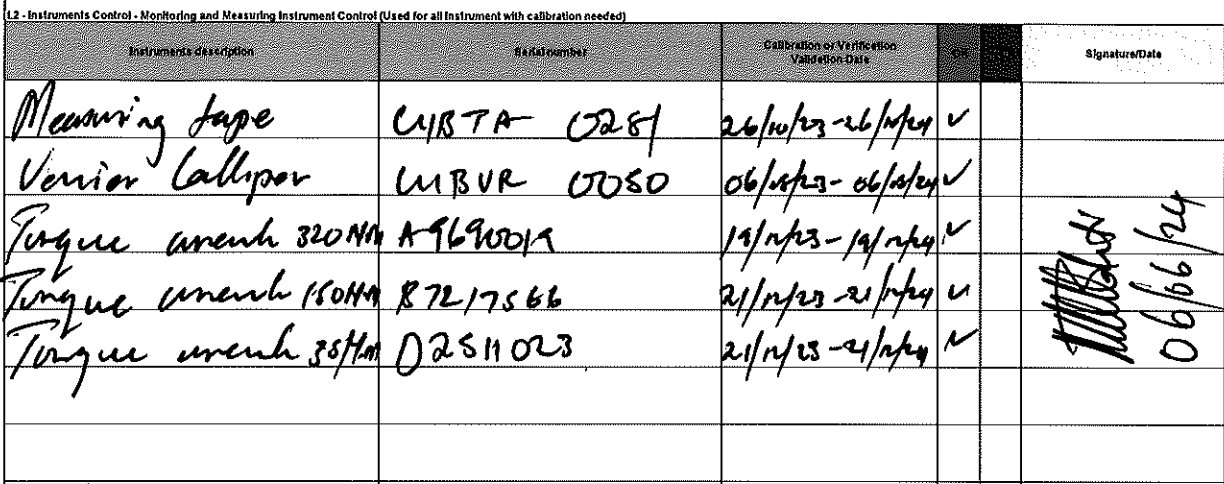 L2 - Instruments Control - Monitoring and Measuring Instrument Control (Used for all Instrument with calibration needed)
Instruments description Serial number Calibration or Verification Validation Date OK Signature/Date
Measuring tape 0281 26/10/23-26/10/24 ✓
Vernier Calliper 0050 ✓
Torque wrench 320 Nm A9690019 19/12/23-19/12/24 ✓
Torque wrench 150Nm 87217566 21/12/23-21/12/24 ✓
Torque wrench 02511023 21/12/23-21/12/24 ✓
06/06/24